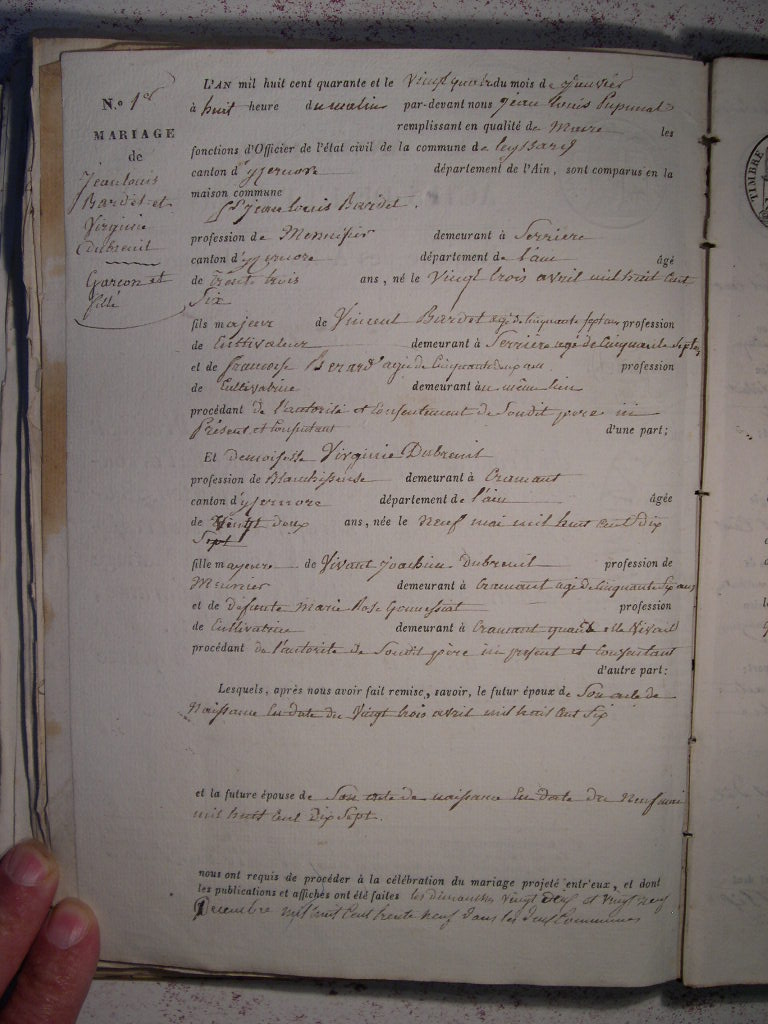 N.o 1er
MARIAGE
de
Jean louis
Bardet et
Virginie
Dubreuil
Garçon et
fille
L'AN mil huit cent quarante et le Vingt quatre du mois de Janvier
à huit heure du matin par-devant nous Jean Louis
remplissant en qualité de Maire les
fonctions d'Officier de l'état civil de la commune de
canton d'yzernore département de l'Ain, sont comparus en la
maison commune
Sr Jean Louis Bardet.
profession de Menuisier demeurant à Serriere
canton d'yzernore département de l'ain âgé
de Trente trois ans, né le Vingt trois avril mil huit cent
Six
fils majeur de Vincent Bardet agé de Cinquante sept ans profession
de Cultivateur demeurant à Serriere agé de Cinquante Sept
et de françoise Berard agée de Cinquante profession
de Cultivatrice demeurant au même lieu
procédant de l'autorité et Consentement de Soudit père ici
Présent et Consentant d'une part;
Et demoiselle Virginie Dubreuil
profession de Blanchisseuse demeurant à Cramant
canton d'yzernore département de l'ain âgée
de Vingt deux ans, née le neuf mai mil huit cent dix
Sept
fille mayeure de Vivant Joachim Dubreuil profession de
Meunier demeurant à Cramant agé de Cinquante Six ans
et de défunte Marie Rose Gonnessiat profession
de Cultivatrice demeurant à Cramant quand elle Vivait
procédant de l'autorité de Soudit père ici present et Consentant
d'autre part:
Lesquels, après nous avoir fait remise, savoir, le futur époux de Son acte de
Naissance En date du Vingt trois avril mil huit cent Six
et la future épouse de Son acte de naissance En date du Neuf mai
mil huit Cent Dix Sept.
nous ont requis de procéder à la célébration du mariage projeté entr'eux, et dont
les publications et affiches ont été faites les dimanches vingt deux et vingt neuf
Decembre mil huit Cent trente neuf dans les deux Communes
TIMBRE